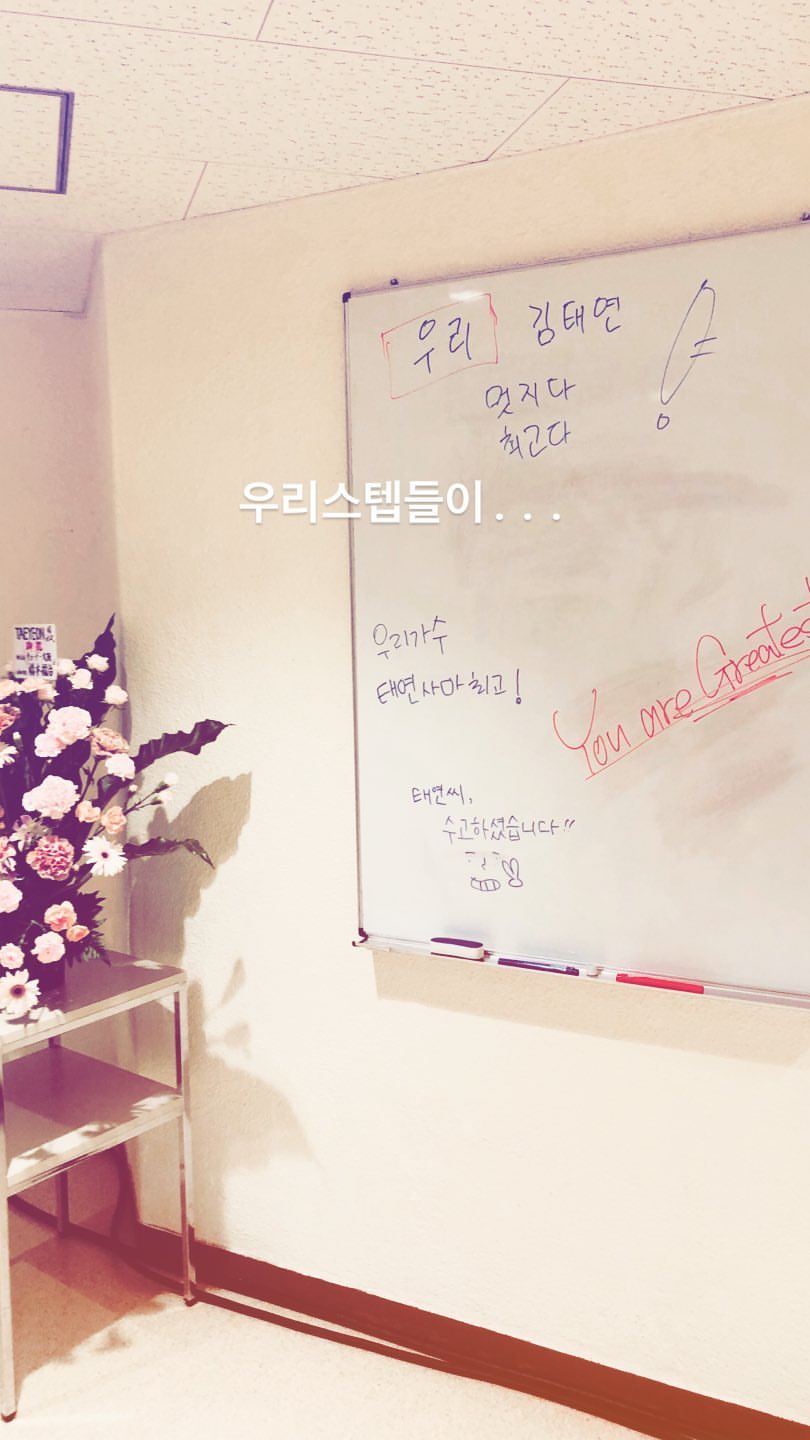 우리 김태연 !
멋지다
최고다
우리스텝들이...
우리가수
태연사마 최고!
You are Greatest
태연씨,
수고하셨습니다!!
TAEYEON